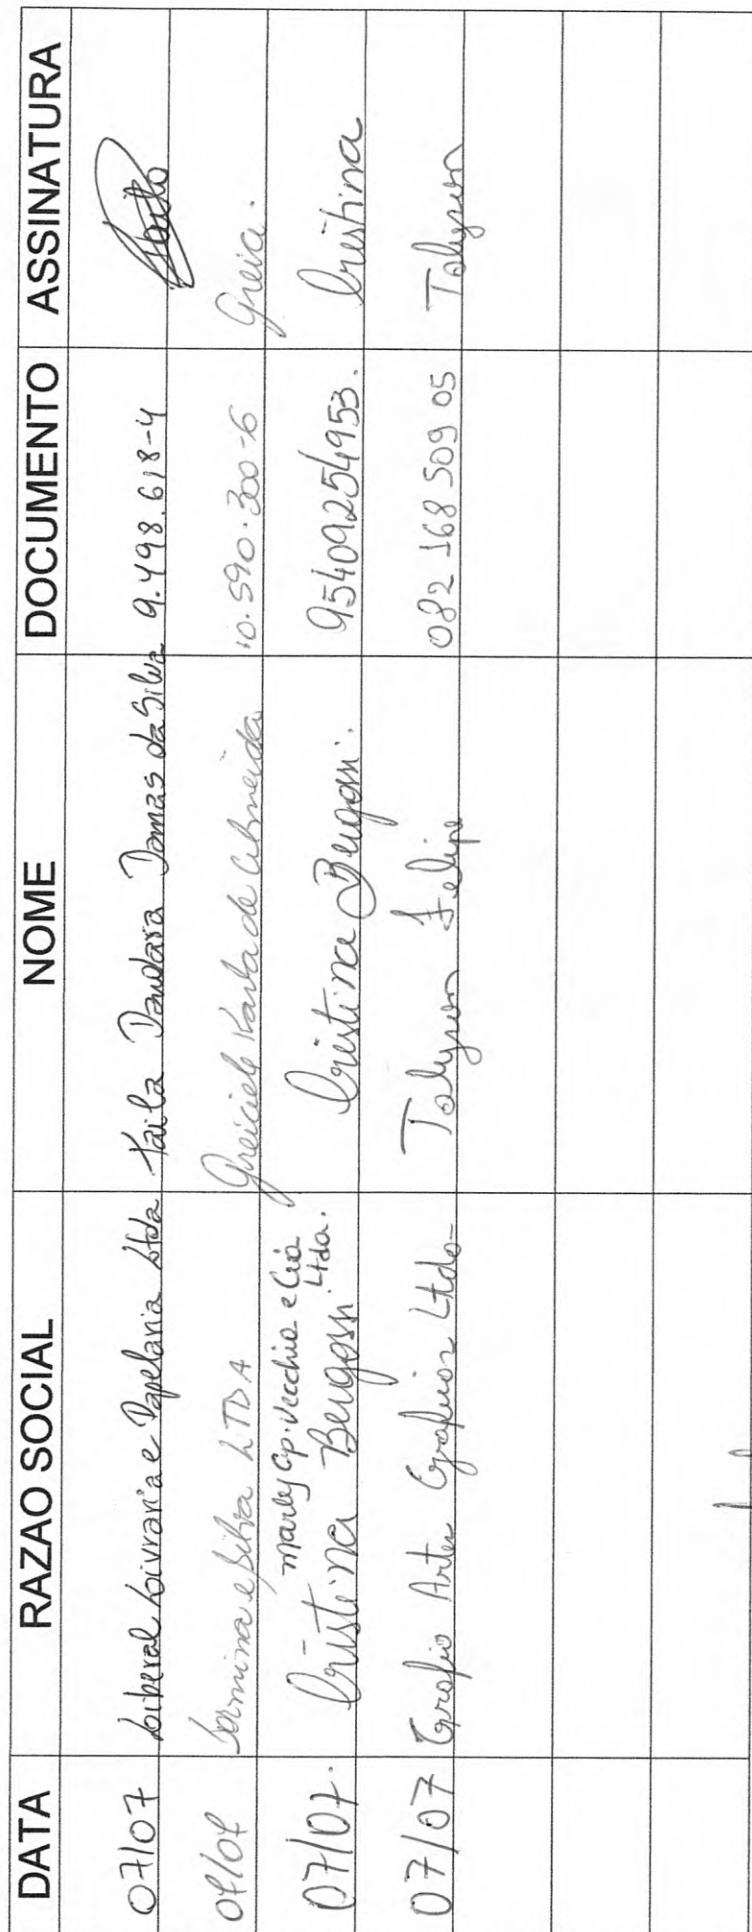 DATA RAZAO SOCIAL NOME DOCUMENTO ASSINATURA
07/07 Liberal Livraria e Papelaria Ltda Taila Dandara Damas da Silva 9.498.618-4
07/07 e Silva LTDA Greiciele Karla de Almeida 10.590.300-6 Greici.
Marley Cip. Vecchio e Cia Ltda.
07/07. Cristina Beugossi Cristina Beugossi. 95409254953. Cristina
07/07 Grafio Artes Graficas Ltda Talyson Felipe 082 168 509 05 Talyson